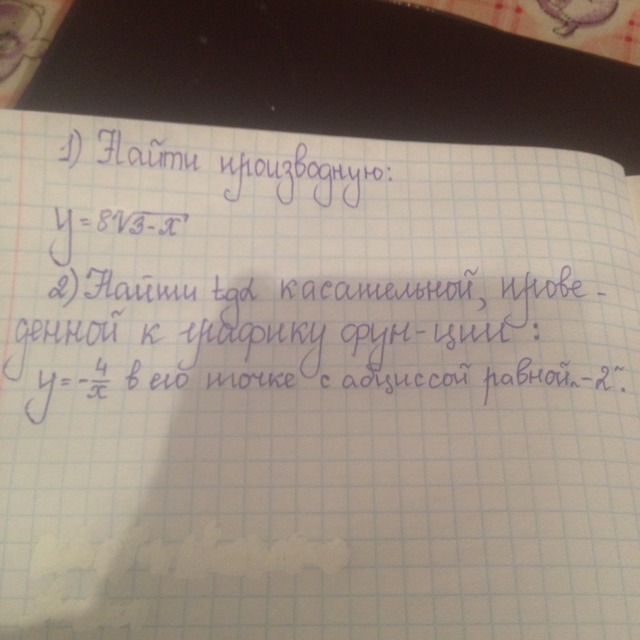 1) Найти производную:
y=8√3-x
2) Найти tgα касательной, прове-
денной к графику фун-ции:
y=-4/x в его точке с абциссой равной „-2".